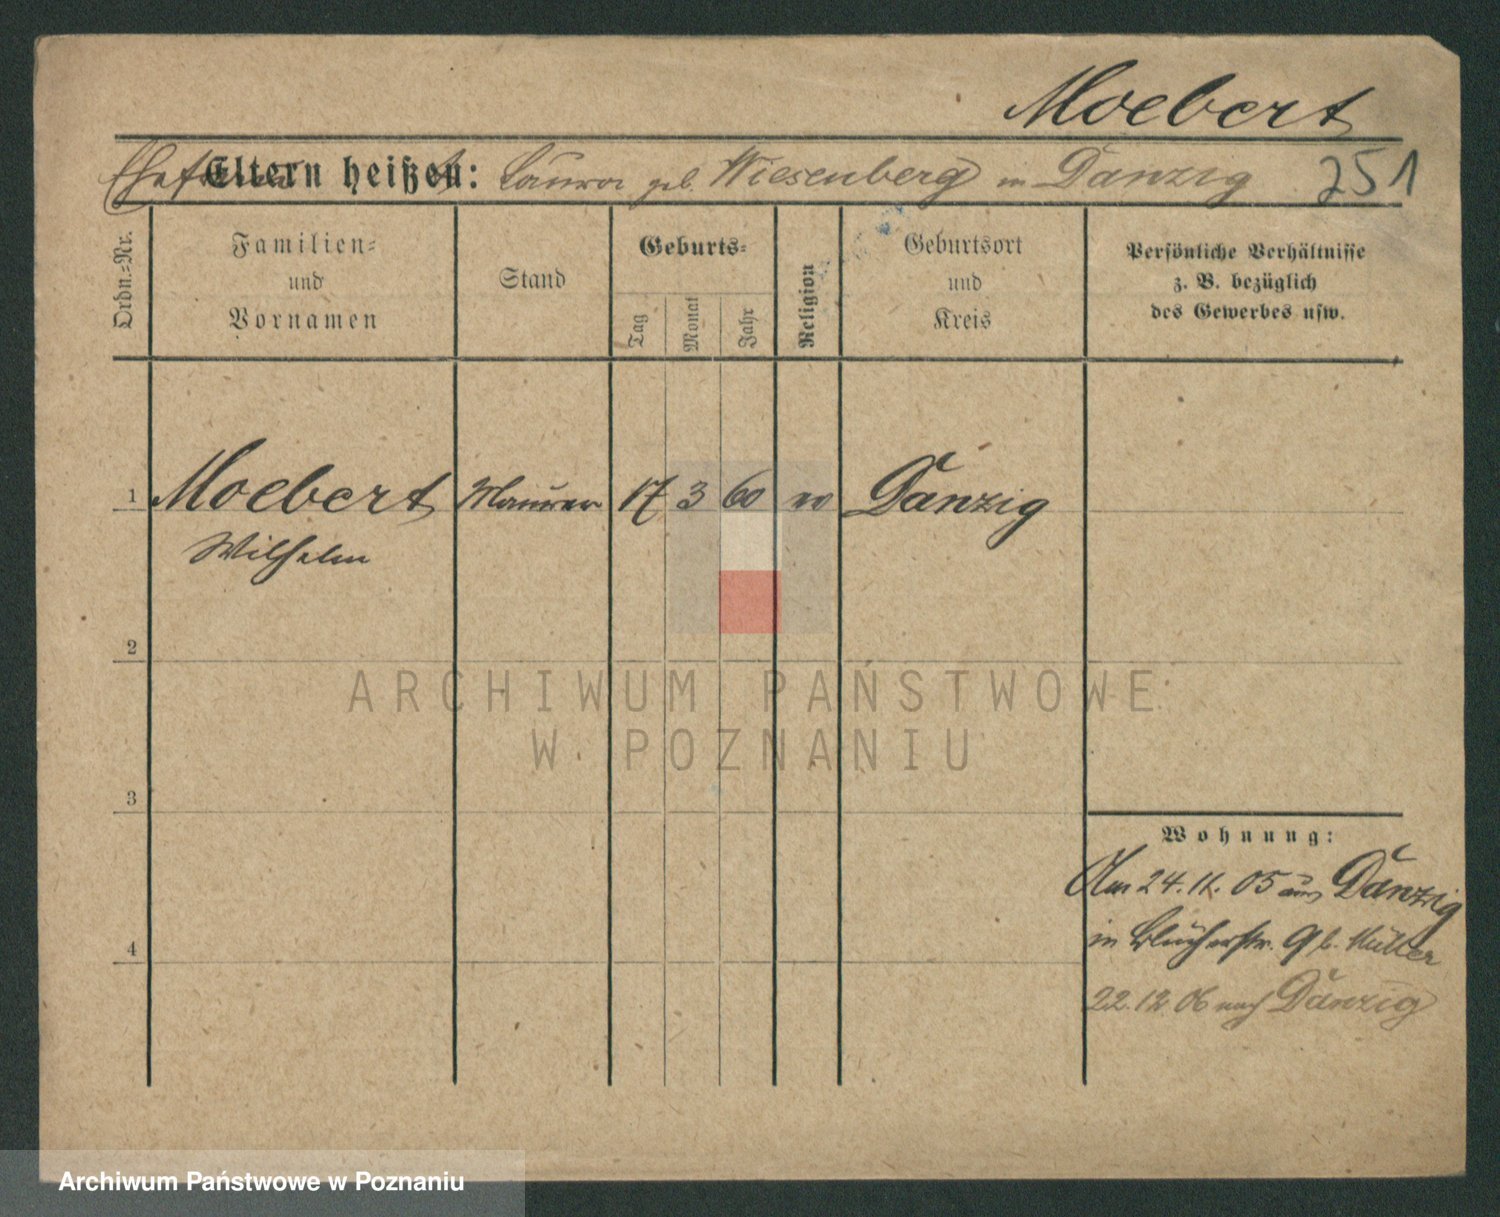 Moebert
Ehefrau Eltern heißen: t Laura geb. Wiesenberg in Danzig 251
Ordn.=Nr.
Familien=
und
Vornamen
Stand
Geburts=
Tag
Monat
Jahr
Religion
Geburtsort
und
Kreis
Persönliche Verhältnisse
z. B. bezüglich
des Gewerbes usw.
1 Moebert Maurer 17 3 60 Danzig
Wilhelm
2
ARCHIWUM PAŃSTWOWE
W POZNANIU
3
Wohnung:
Am 24.11.05 aus Danzig
in Blücherstr. 9 b. Müller
4
22.12.06 nach Danzig
Archiwum Państwowe w Poznaniu